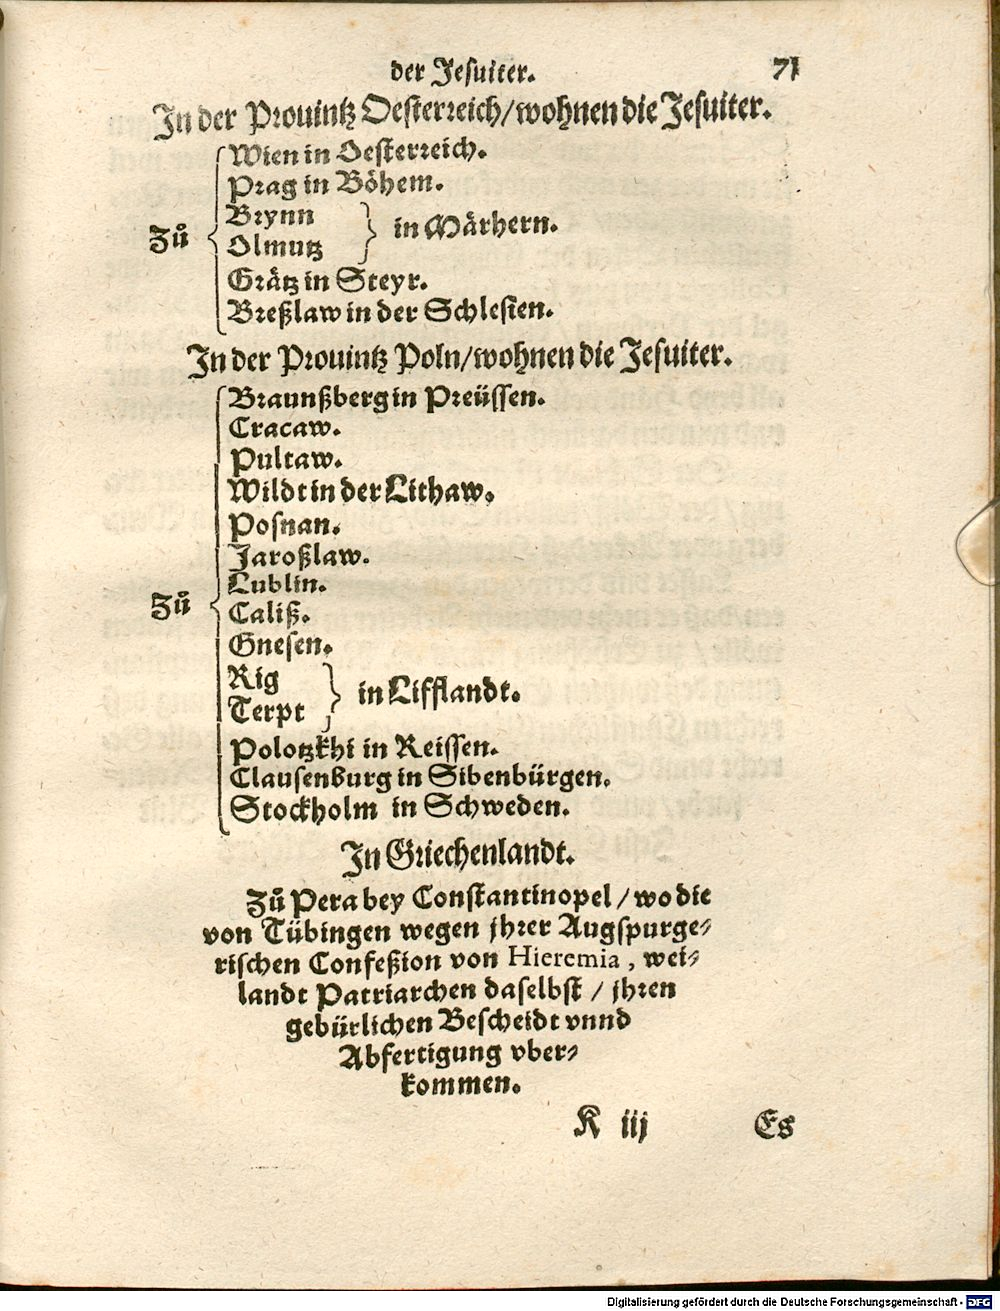 der Jesuiter. 71
In der Prouintz Oesterreich/wohnen die Jesuiter.
Wien in Oesterreich.
Prag in Böhem.
Brynn
Zů Olmutz in Märhern.
Grätz in Steyr.
Breßlaw in der Schlesien.
In der Prouintz Poln/wohnen die Jesuiter.
Braunßberg in Preüssen.
Cracaw.
Pultaw.
Wildt in der Lithaw.
Posnan.
Jaroßlaw.
Lublin.
Zů Caliß.
Gnesen.
Rig
Terpt in Lifflandt.
Polotzkhi in Reissen.
Clausenburg in Sibenbürgen.
Stockholm in Schweden.
In Griechenlandt.
Zů Pera bey Constantinopel / wo die
von Tübingen wegen jhrer Augspurge⸗
rischen Confeßion von Hieremia, wei⸗
landt Patriarchen daselbst / jhren
gebürlichen Bescheidt vnnd
Abfertigung vber⸗
kommen.
K iij Es
Digitalisierung gefördert durch die Deutsche Forschungsgemeinschaft - DFG